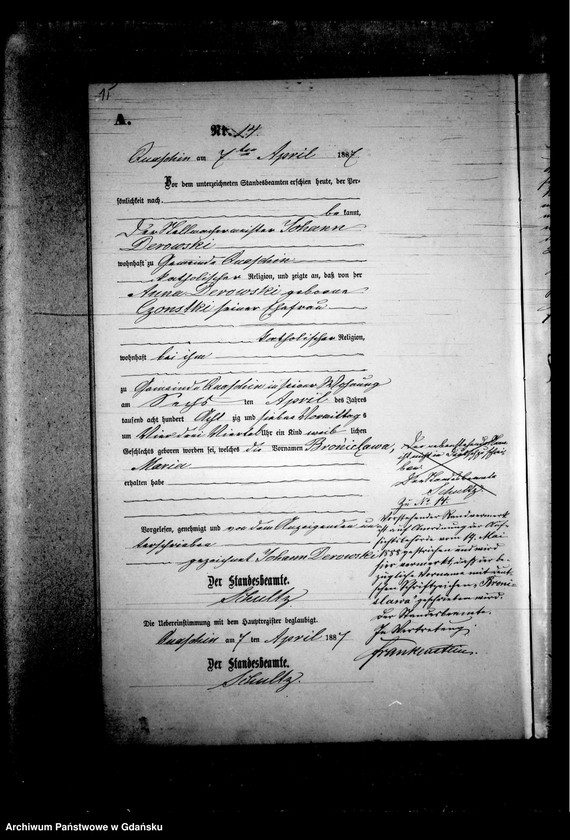 15
A.
Nr. 14.
Quaschin am 7ten April 1887
Vor dem unterzeichneten Standesbeamten erschien heute, der Per-
sönlichkeit nach
bekannt,
der Stellmachermeister Johann
Derowski
wohnhaft zu Gemeinde Quaschin
katholischer Religion, und zeigte an, daß von der
Anna Derowski geborene
Czonstki seiner Ehefrau
katholischer Religion,
wohnhaft bei ihm
zu Gemeinde Quaschin in seiner Wohnung
am Sechs ten April des Jahres
tausend acht hundert Acht zig und sieben Vormittags
um Vier drei Viertel Uhr ein Kind weib lichen
Geschlechts geboren worden sei, welches die Vornamen Bronisława,
Maria
erhalten habe
Vorgelesen, genehmigt und von dem Anzeigenden un
terschrieben
gezeichnet Johann Derowski
Der Standesbeamte.
Schultz
Die Uebereinstimmung mit dem Hauptregister beglaubigt.
Quaschin am 7 ten April 1887
Der Standesbeamte.
Schultz.
Der nebenstehende Name
ist nicht in
Der Standesbeamte
Schultz.
Zu No 14
Vorstehender Randvermerk
ist auf Anordnung der Auf-
sichtsbehörde vom 19. Mai
1888 gestrichen und wird
hier vermerkt, daß der be-
zügliche Vorname mit deut-
schen Schriftzeichen "Broni-
slawa" geschrieben wird.
Der Standesbeamte
In Vertretung
Frankenstein.
Archiwum Państwowe w Gdańsku